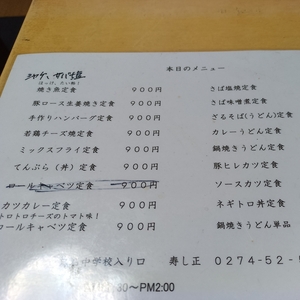 本日のメニュー
ほっけ、たい粕!
焼き魚定食 900円
豚ロース生姜焼き定食 900円
手作りハンバーグ定食 900円
若鶏チーズ焼定食 900円
ミックスフライ定食 900円
てんぷら(丼)定食 900円
ロールキャベツ定食 900円
カツカレー定食 900円
トロトロチーズのトマト味!
ロールキャベツ定食 900円
さば塩焼定食
さば味噌煮定食
ざるそば(うどん)定食
カレーうどん定食
鍋焼きうどん定食
豚ヒレカツ定食
ソースカツ定食
ネギトロ丼定食
鍋焼きうどん単品
中学校入り口 寿し正 0274-52-
30~PM2:00